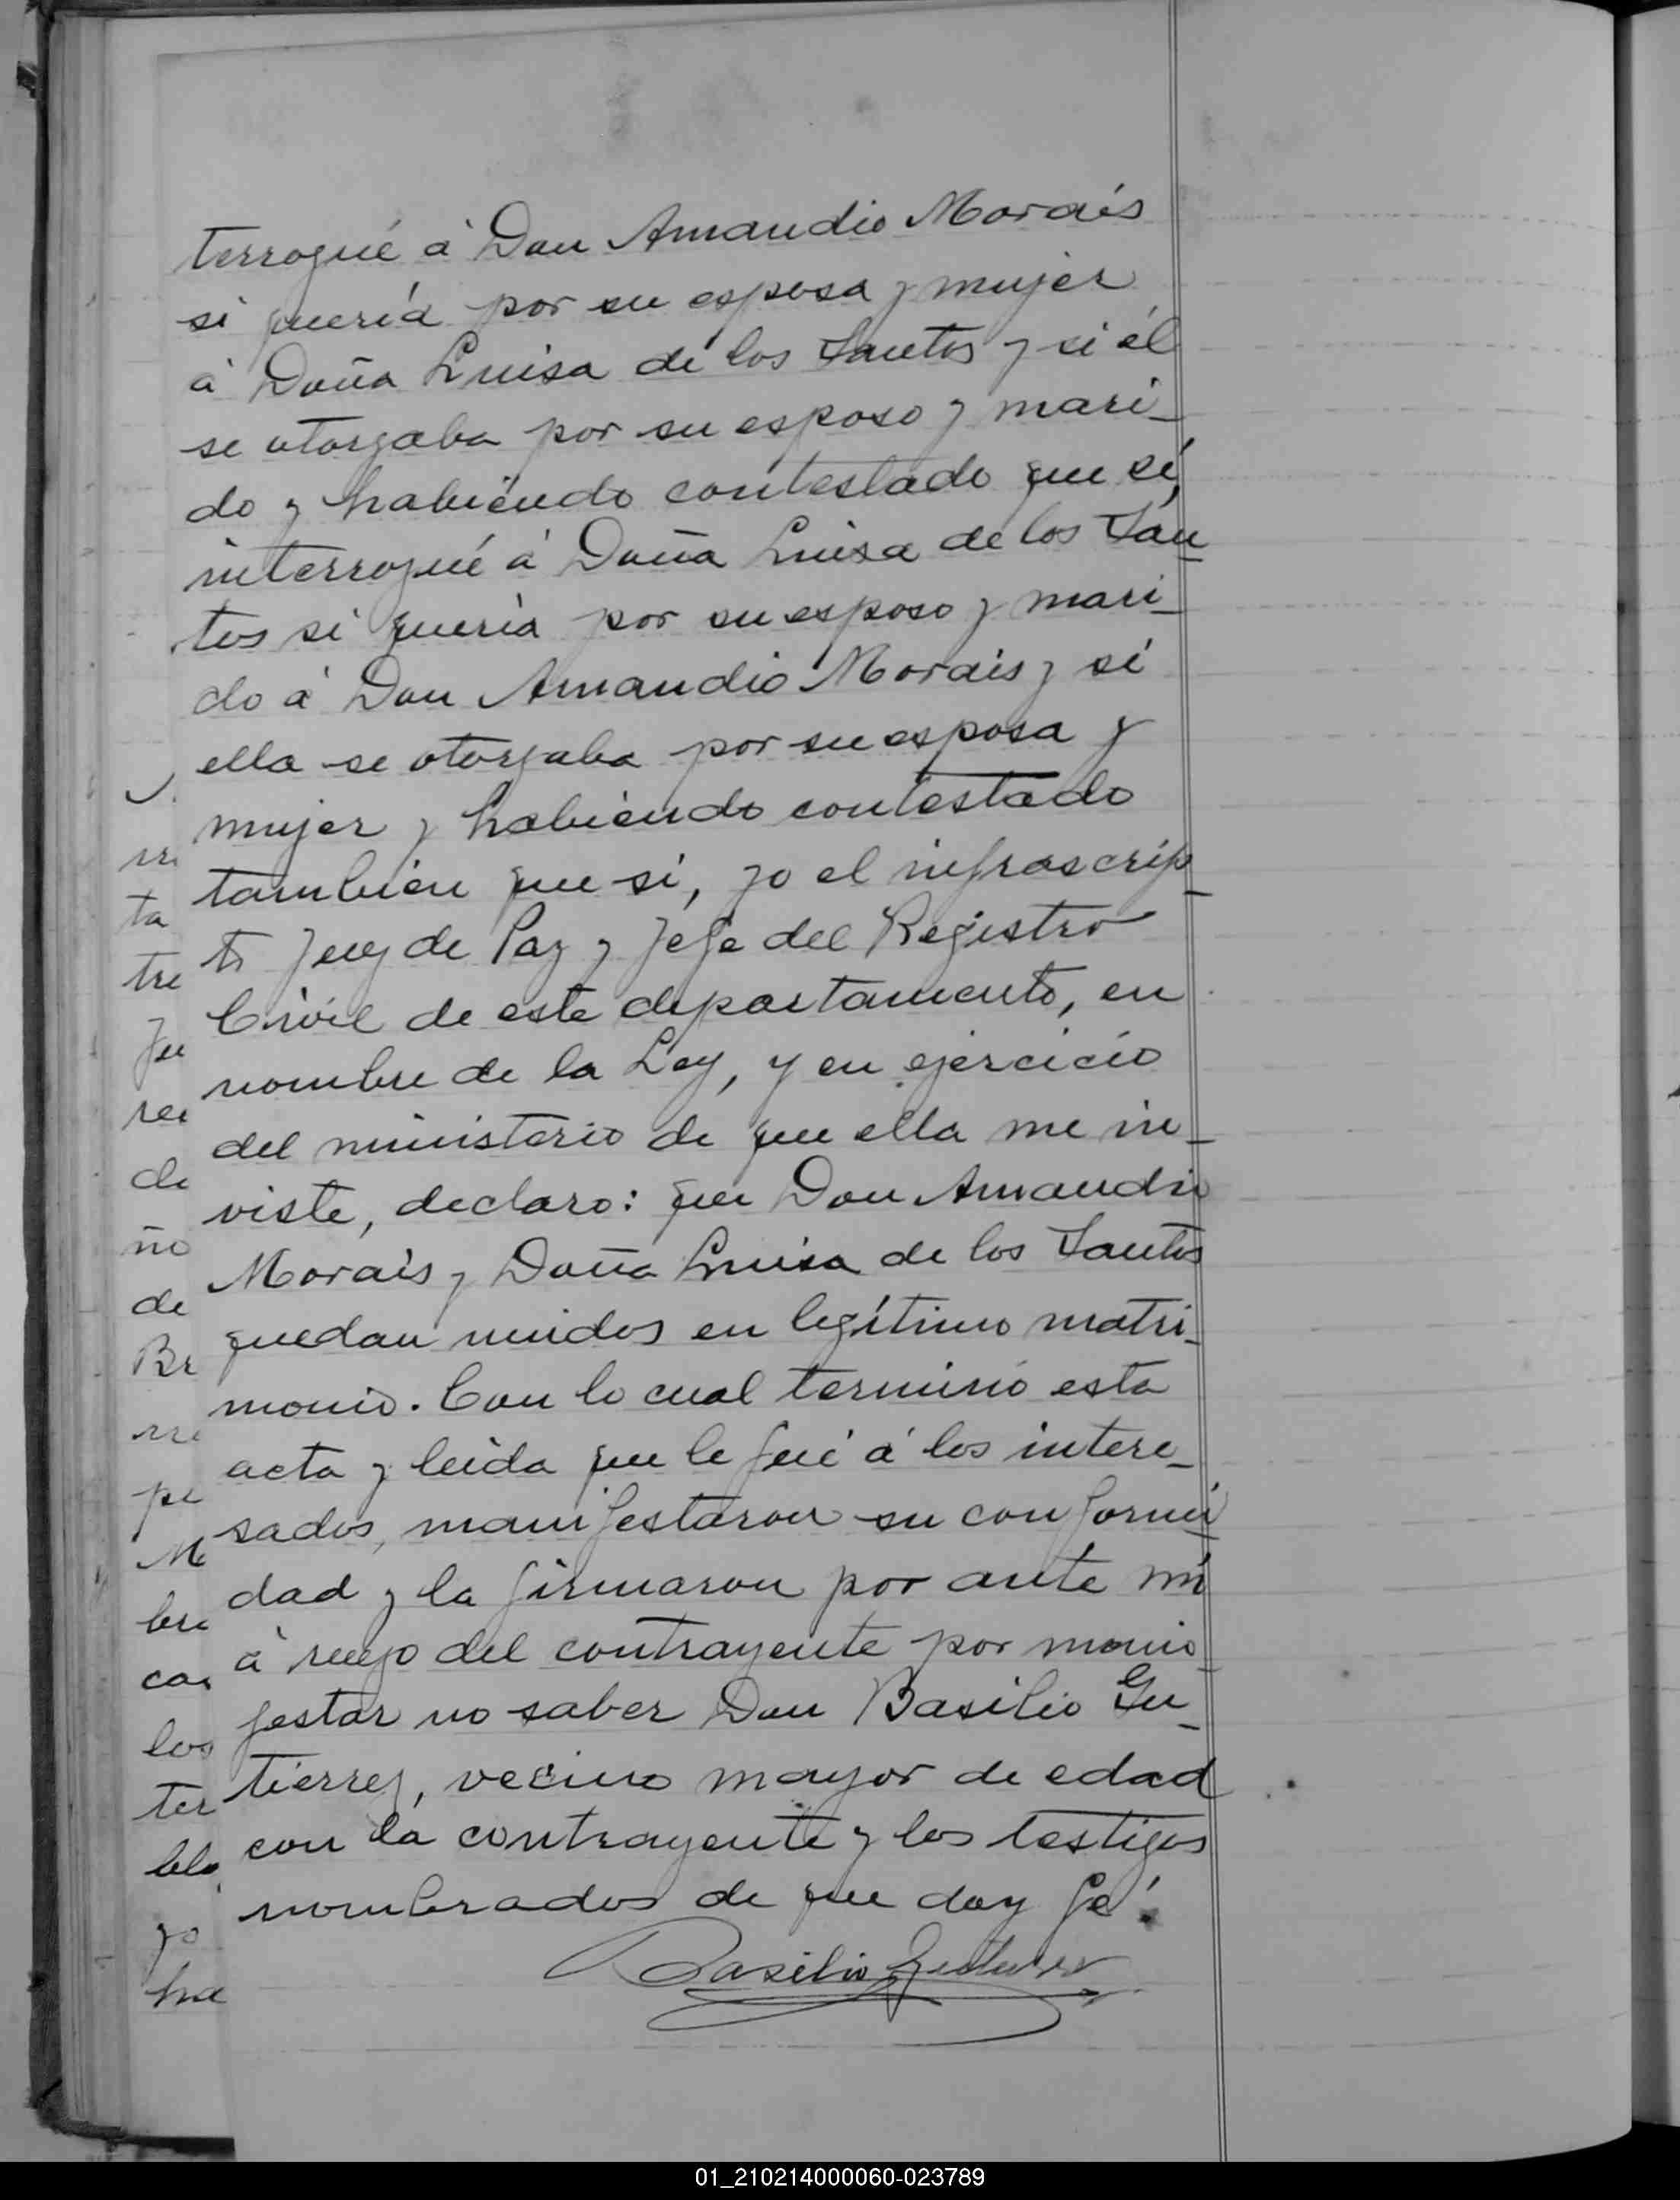 terrogué á Don Amandio Morais
si quería por su esposa y mujer
á Doña Luisa de los Santos y si él
se otorgaba por su esposo y mari-
do y habiendo contestado que sí,
interrogué á Doña Luisa de los San-
tos si quería por su esposo y mari-
do á Don Amandio Morais y si
ella se otorgaba por su esposa y
mujer y habiendo contestado
tambien que si, yo el infrascrip-
to Juez de Paz y Jefe del Registro
Civil de este departamento, en
nombre de la Ley, y en ejercicio
del ministerio de que ella me in-
viste, declaro: que Don Amandio
Morais y Doña Luisa de los Santos
quedan unidos en legítimo matri-
monio. Con lo cual terminó esta
acta y leida que le fué á los intere-
sados, manifestaron su conformi
dad y la firmaron por ante mí
á ruego del contrayente por mani-
festar no saber Don Basilio Gu-
tierrez, vecino mayor de edad
con la contrayente y los testigos
nombrados de que doy fé.
Basilio Gutierrez
ta
tre
de
ño
de
Br
pe
los
ter
yo
ha
01_210214000060-023789